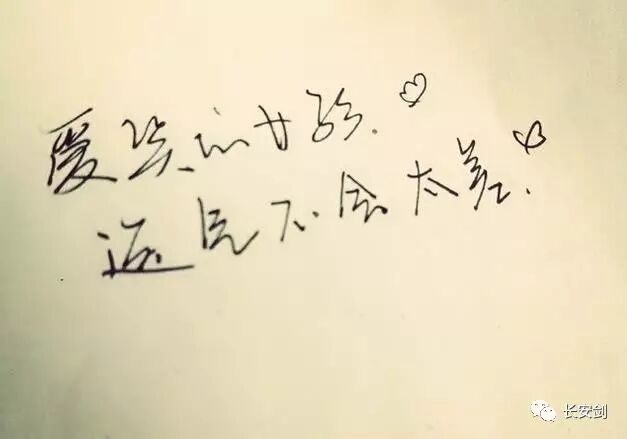 爱笑的女孩.
运气不会太差.
长安剑